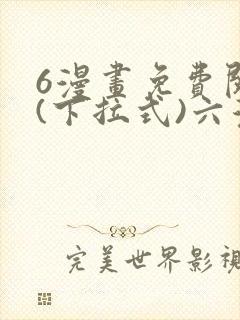 6漫畫免費
(下拉式)六
完美世界影視